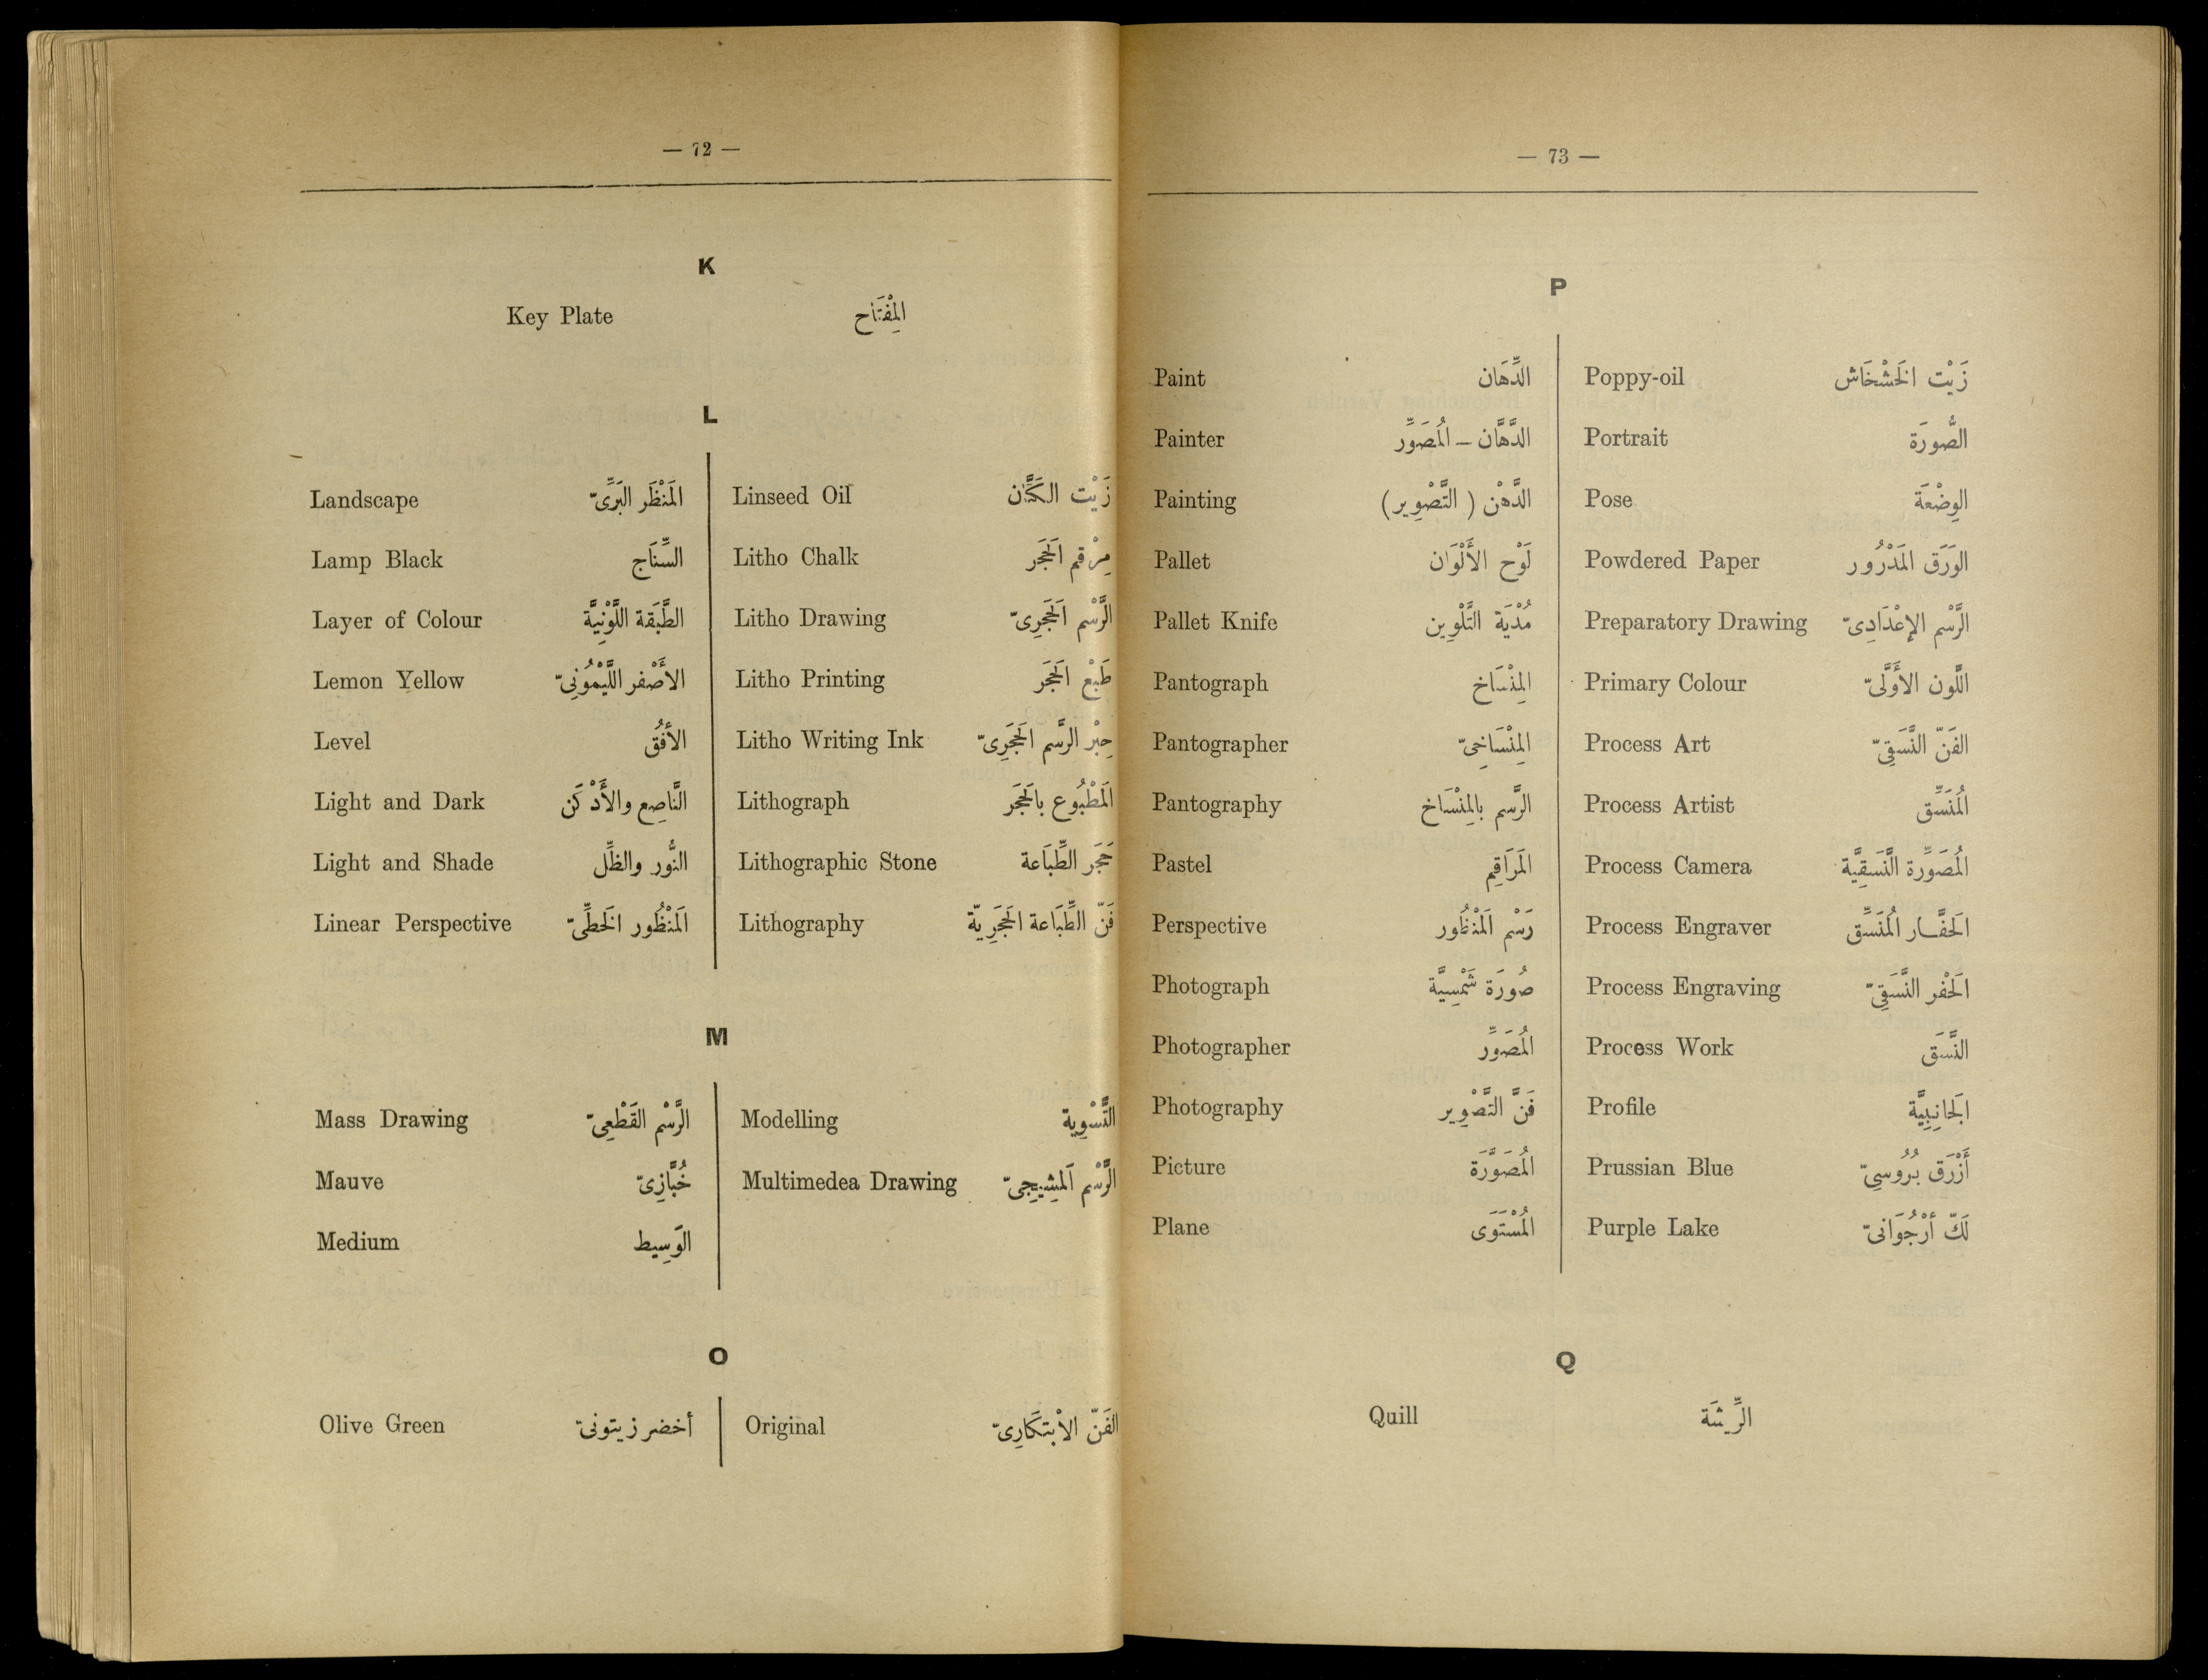 — 72 —
K
Key Plate المِفْتَاح
L
Landscape المَنْظَر البَرِّىّ
Lamp Black السِّنَاج
Layer of Colour الطَّبَقة اللَّوْنِيَّة
Lemon Yellow الأَصْفر اللَّيْمُونِىّ
Level الأفُق
Light and Dark النَّاصِع والأَدْكَن
Light and Shade النُّور والظِّل
Linear Perspective المَنْظُور الخَطِّىّ
Linseed Oil زَيْت الكَتَّان
Litho Chalk مِرْقم الحَجَر
Litho Drawing الرَّسْم الحَجَرِىّ
Litho Printing طَبْع الحَجَر
Litho Writing Ink حِبْر الرَّسْم الحَجَرِىّ
Lithograph المَطْبُوع بالحَجَر
Lithographic Stone حَجَر الطِّبَاعة
Lithography فَنّ الطِّبَاعة الحَجَرِيّة
M
Mass Drawing الرَّسْم القَطْعِىّ
Mauve خُبَّازِىّ
Medium الوَسِيط
Modelling التَّسْوِية
Multimedea Drawing الرَّسْم المَشِيجِىّ
O
Olive Green أخضر زيتونىّ
Original الفَنّ الاْبتكَارِىّ
— 73 —
P
Paint الدِّهَان
Painter الدَّهَّان – المُصَوِّر
Painting الدَّهْن ( التَّصْوِير )
Pallet لَوْح الأَلْوَان
Pallet Knife مُدْيَة التَّلْوِين
Pantograph المِنْسَاخ
Pantographer المِنْسَاخِىّ
Pantography الرَّسْم بالمِنْسَاخ
Pastel المَرَاقِم
Perspective رَسْم المَنْظُور
Photograph صُورَة شَمْسِيَّة
Photographer المُصَوِّر
Photography فَنَّ التَّصْوِير
Picture المُصَوَّرَة
Plane المُسْتَوَى
Poppy-oil زَيْت الخَشْخَاش
Portrait الصُّورَة
Pose الوِضْعَة
Powdered Paper الوَرَق المَذْرُور
Preparatory Drawing الرَّسْم الإعْدَادِىّ
Primary Colour اللَّون الأَوَّلىّ
Process Art الفَنّ النَّسَقِىّ
Process Artist المُنَسِّق
Process Camera المُصَوِّرة النَّسَقِيَّة
Process Engraver الحَفَّار المُنَسِّق
Process Engraving الحَفْر النَّسَقِىّ
Process Work النَّسَق
Profile الجَانِبِيَّة
Prussian Blue أَزْرَق بُرُوسِىّ
Purple Lake لَكّ أرْجُوَانىّ
Q
Quill الرِّيشَة